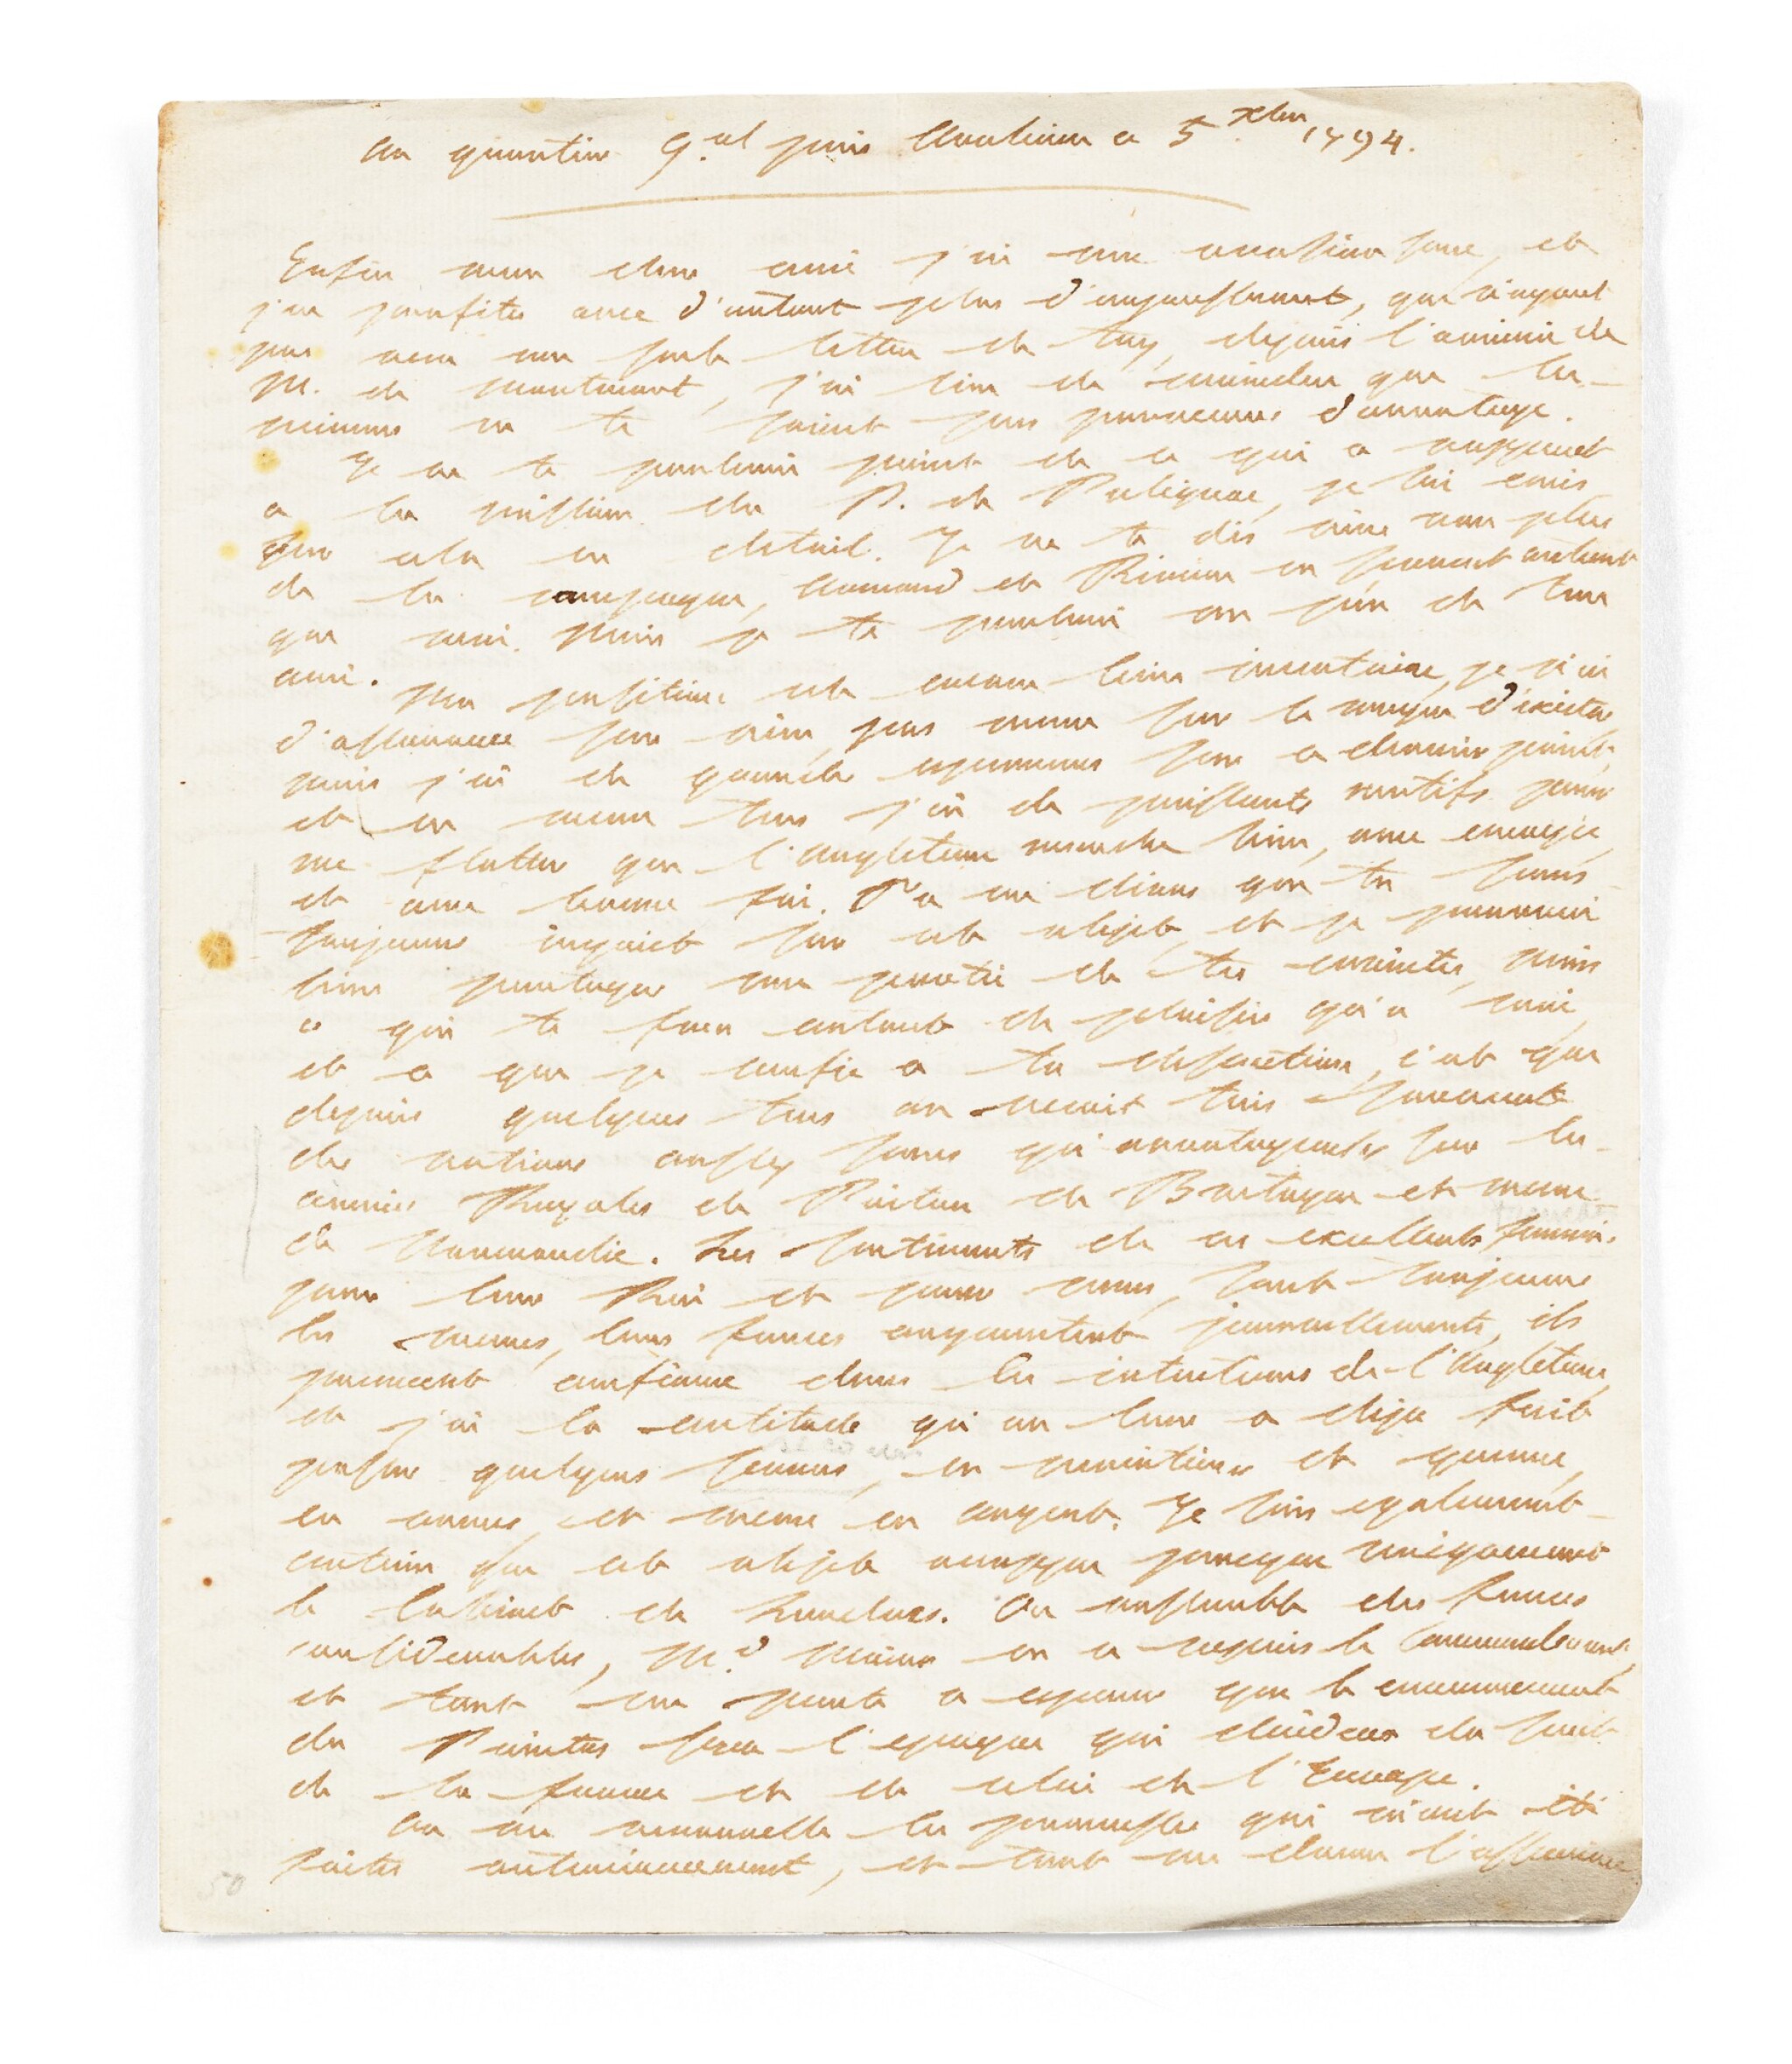 au quartier g.al près Arnheim ce 5 xbre 1794.
Enfin mon cher ami j'ai une occasion sure, et
j'en profite avec d'autant plus d'empressement, que n'ayant
pas reçu une seule lettre de toy, depuis l'arrivée de
M. de Montmort, j'ai lieu de craindre que les
miennes ne te soient pas parvenues d'avantage.
Je ne te parlerai point de ce qui a rapport
a la mission du P. de Polignac, je lui ecris
sur cela en detail. Je ne te dis rien non plus
de la campagne, Armand et Riviere en savent autant
que moi. Mais je te parlerai un peu de ton
ami.
Ma position est encore bien incertaine, je n'ai
d'assurance sur rien, pas meme sur le moyen d'exister,
mais j'ai de grandes esperances sur ce dernier point,
et en meme tems j'ai de puissants motifs pour
me flatter que l'Angleterre marche bien, avec energie,
et avec bonne foi. Tu me diras que tu seras
toujours inquiet sur cet objet, et je pourrai
bien partager une partie de tes craintes, mais
ce qui te fera autant de plaisir qu'a moi,
et ce que je confie a ta discretion, c'est que
depuis quelques tems on reçoit tres souvent
des notions aussy sures qu'avantageuses sur les
armées Royales de Poitou de Bretagne et meme
de Normandie. Les sentiments de ces excellents francois
pour leur Roi et pour nous, sont toujours
les memes, leurs forces augmentent journellement, ils
prennent confiance dans les intentions de l'Angleterre,
et j'ai la certitude qu'on leur a deja fait
passer quelques secours, en munitions de guerre,
en armes, et meme en argent. Je suis egalement
certain que cet objet occupe presque uniquement
le Cabinet de Londres. On assemble des forces
considerables, M.d Moira en a repris le commandement,
et tout me porte a esperer que le commencement
du Printems sera l'epoque qui decidera du sort
de la france et de celui de l'Europe.
On me renouvelle les promesses qui m'ont été
faites anterieurement, et tout me donne l'assurance
50